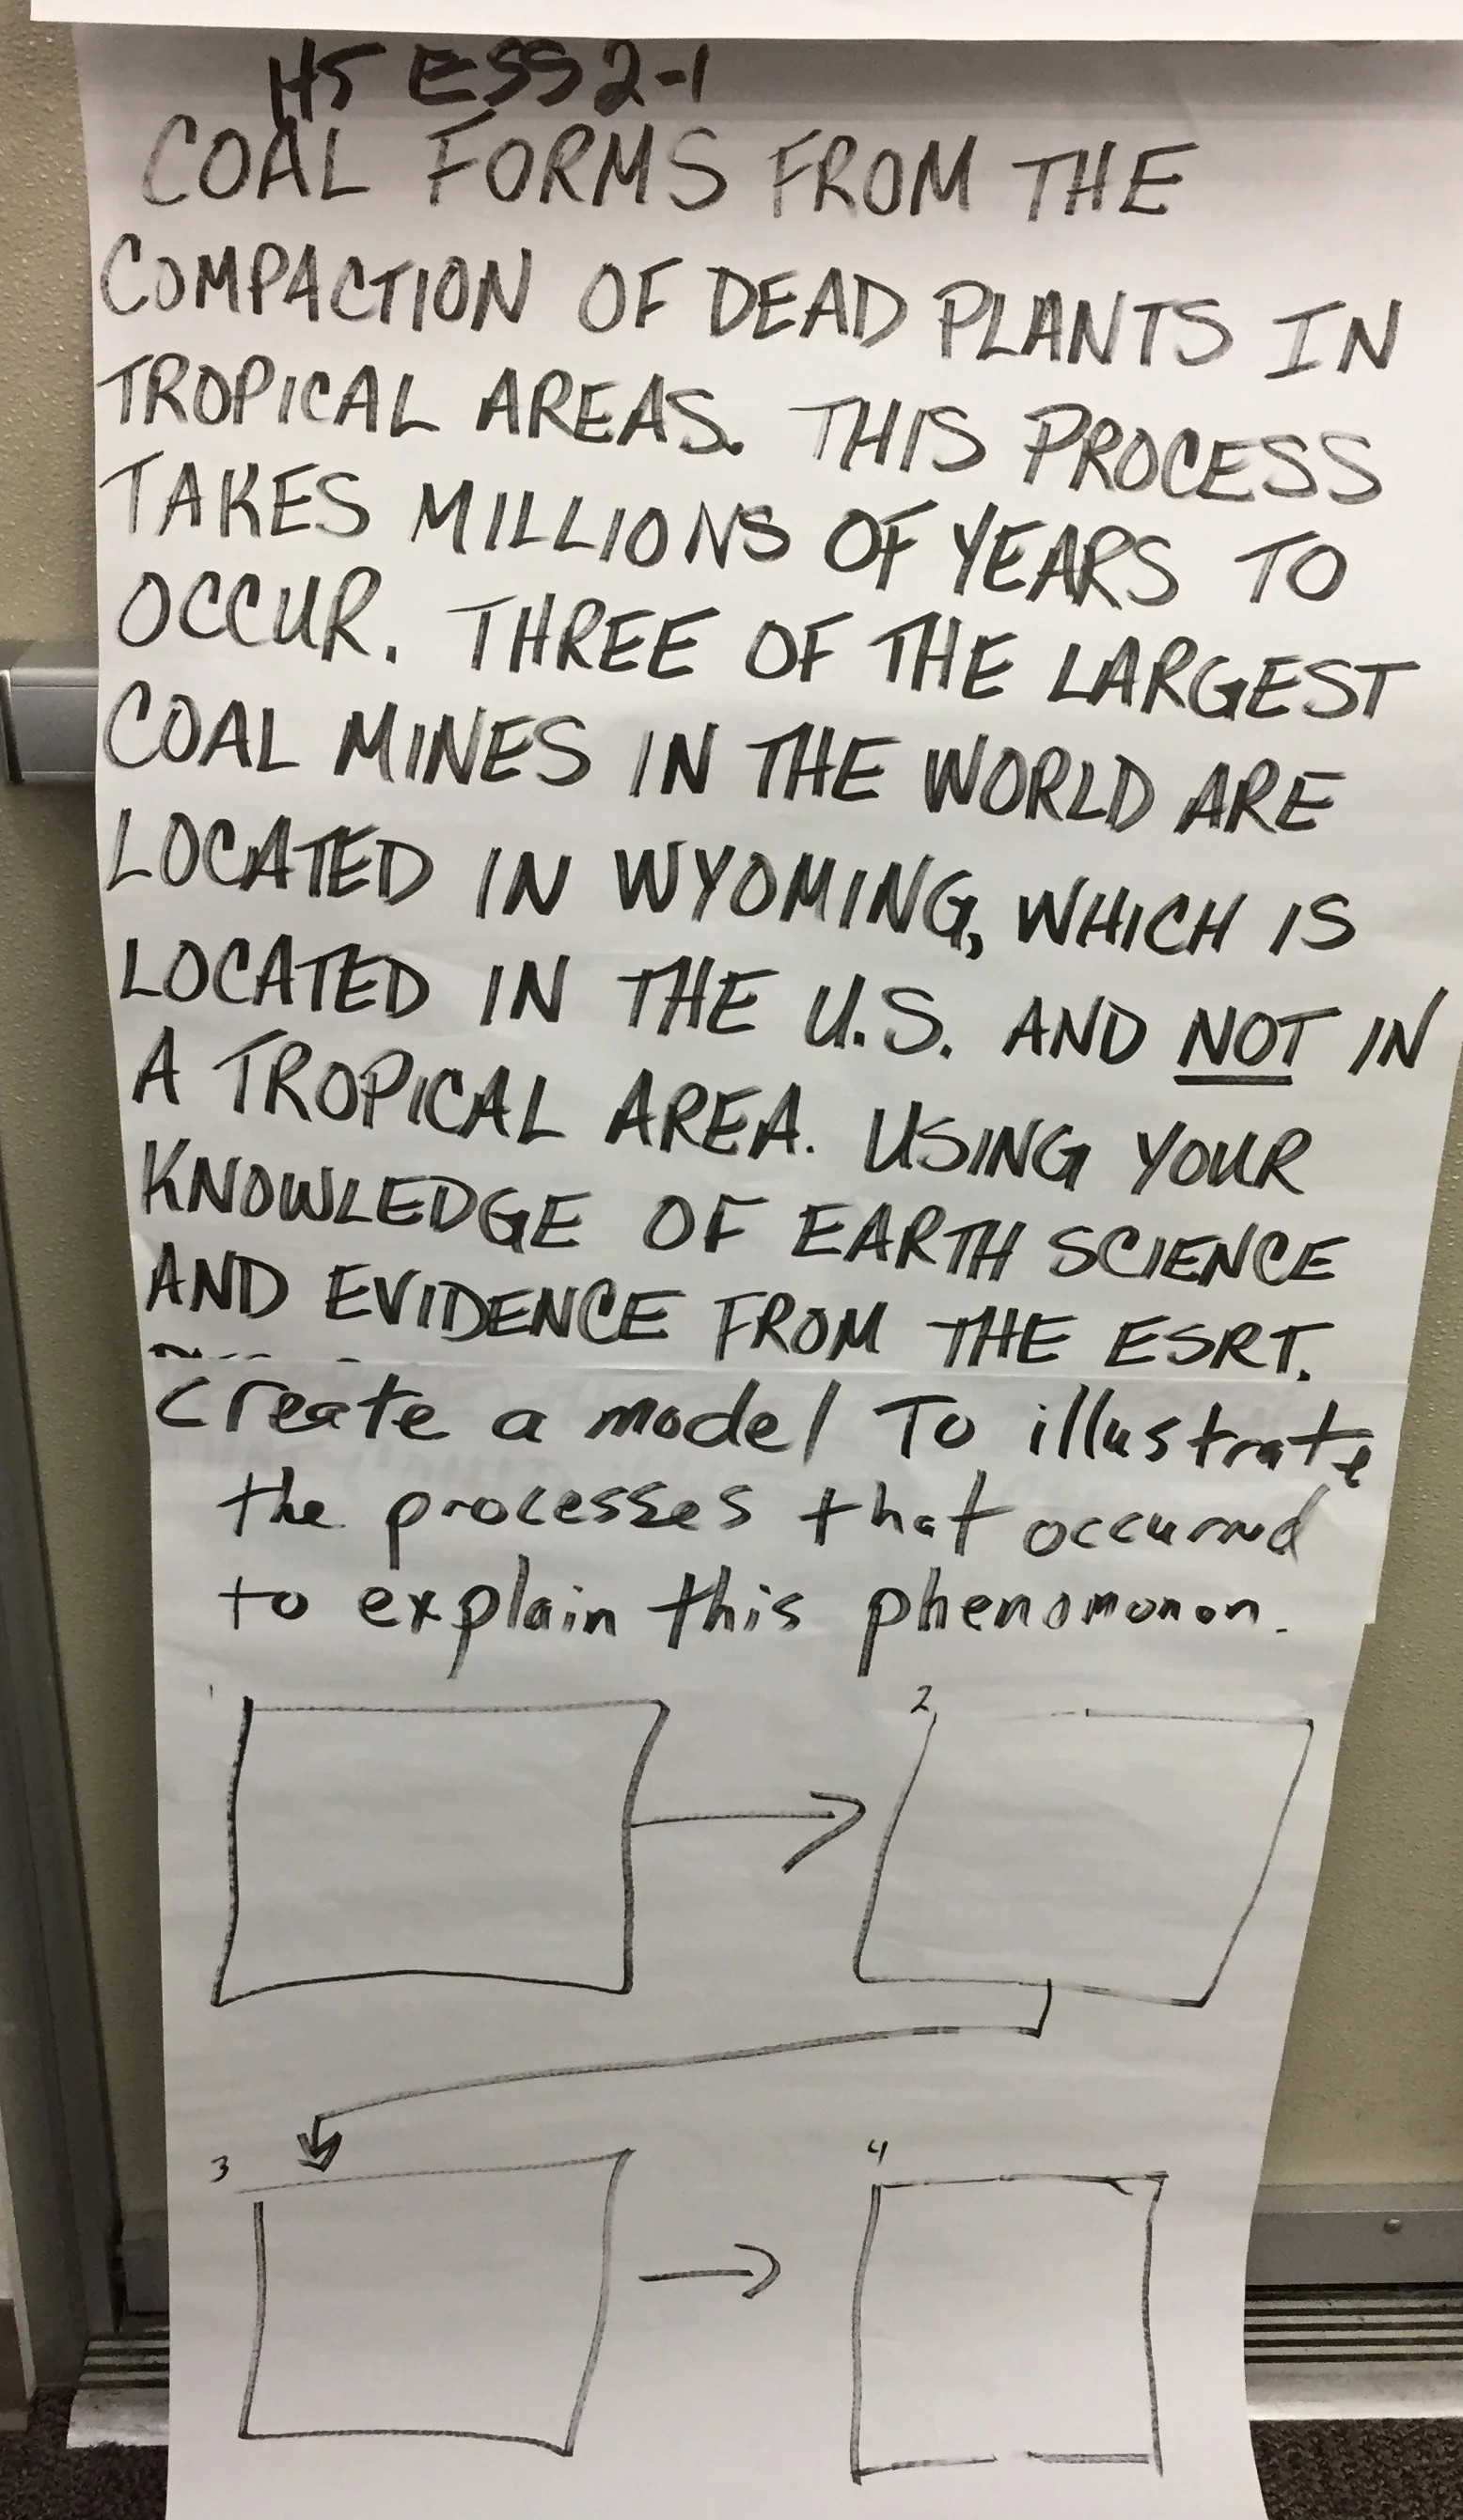 HS ESS2-1
COAL FORMS FROM THE
COMPACTION OF DEAD PLANTS IN
TROPICAL AREAS. THIS PROCESS
TAKES MILLIONS OF YEARS TO
OCCUR. THREE OF THE LARGEST
COAL MINES IN THE WORLD ARE
LOCATED IN WYOMING, WHICH IS
LOCATED IN THE U.S. AND NOT IN
A TROPICAL AREA. USING YOUR
KNOWLEDGE OF EARTH SCIENCE
AND EVIDENCE FROM THE ESRT.
Create a model To illustrate
the processes that occurred
to explain this phenomonon.
1
2
3
4